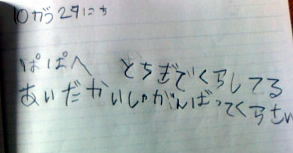 10がつ29にち
ぱぱへ とちぎでくらしてる
あいだかいしゃがんばってくらさい